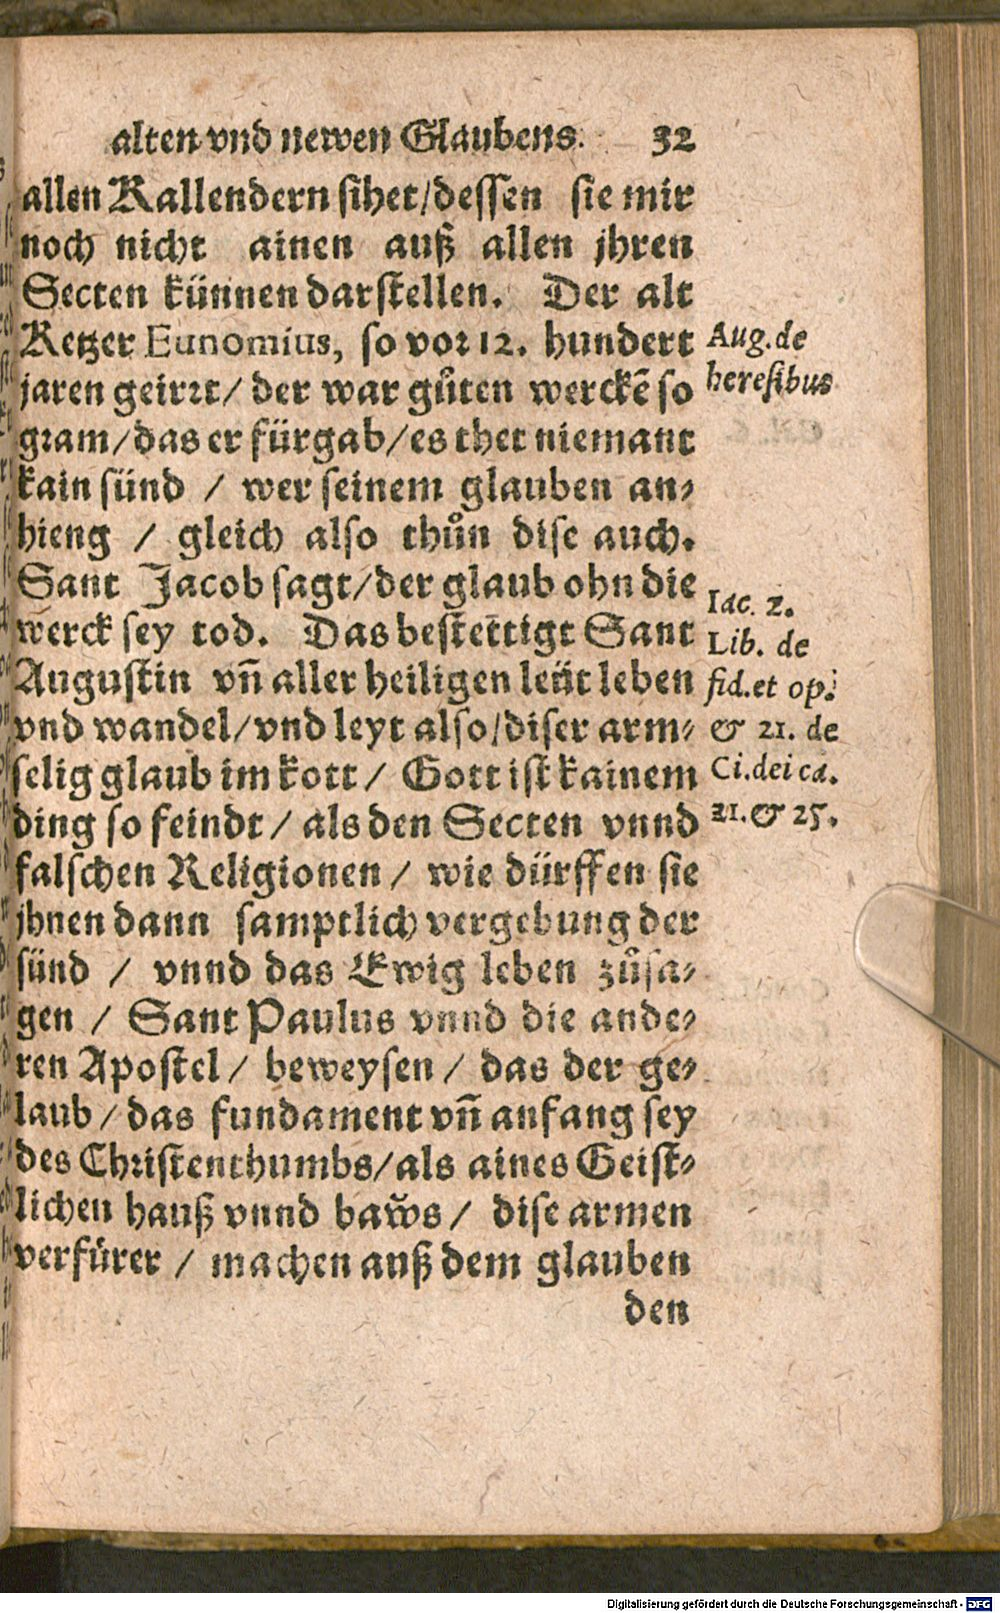 alten vnd newen Glaubens. 32
allen Kallendern sihet/dessen sie mir
noch nicht ainen auß allen jhren
Secten künnen darstellen. Der alt
Ketzer Eunomius, so vor 12. hundert
jaren geirrt/ der war gůten werckẽ so
gram/das er fürgab/es thet niemant
kain sünd / wer seinem glauben an-
hieng / gleich also thůn dise auch.
Sant Jacob sagt/der glaub ohn die
werck sey tod. Das bestettigt Sant
Augustin vñ aller heiligen leüt leben
vnd wandel/vnd leyt also/diser arm-
selig glaub im kott/ Gott ist kainem
ding so feindt/ als den Secten vnnd
falschen Religionen/ wie dürffen sie
jhnen dann samptlich vergebung der
sünd / vnnd das Ewig leben zůsa-
gen / Sant Paulus vnnd die ande-
ren Apostel/ beweysen/ das der ge-
laub/das fundament vñ anfang sey
des Christenthumbs/als aines Geist-
lichen hauß vnnd baw̌s/ dise armen
verfürer / machen auß dem glauben
den
Aug.de
heresibus
Iac. 2.
Lib. de
fid.et op.
& 21. de
Ci.dei ca.
21.& 25.
Digitalisierung gefördert durch die Deutsche Forschungsgemeinschaft - DFG